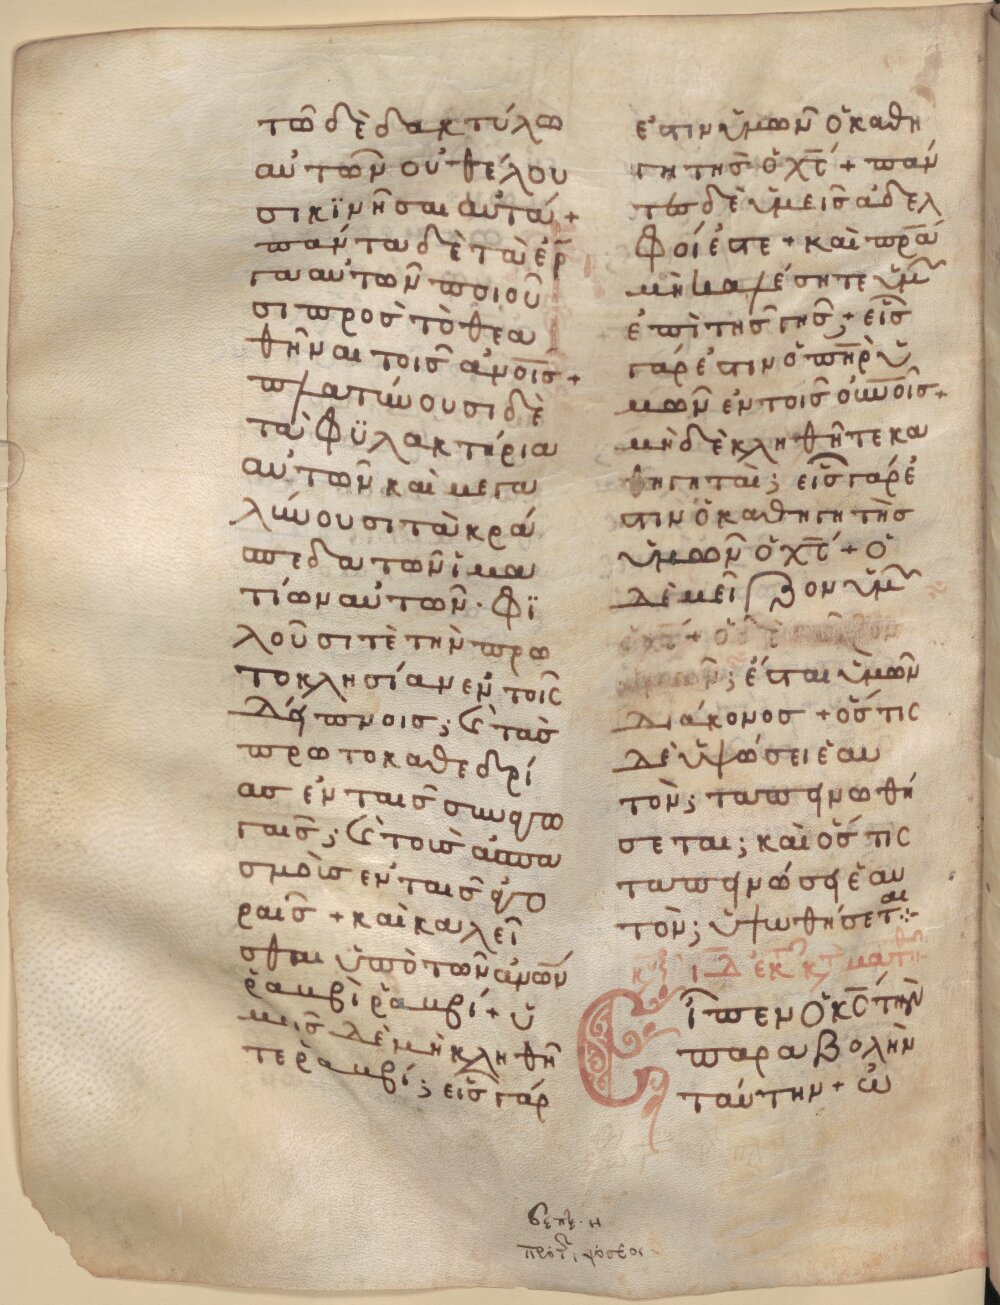 τῶ δὲ δακτύλω
αὐτῶν οὐ θέλου
σι κϊνῆσαι αὐτά +
πάντα δὲ τὰ ἐρ
γα αὐτῶν ποιοῦ
σι προς τὸ θεα
θῆναι τοισ ἀνοισ +
πλατύνουσι δὲ
τὰ φϋλακτήρια
αὐτῶν καὶ μεγα
λύνουσι τὰ κρά
σπεδα τῶν ἱμα
τίων αὐτῶν · φϊ
λοῦσι τὲ τὴν πρω
τοκλησίαν ἐν τοις
δείπνοις ; καὶ τὰσ
πρωτοκαθεδρί
ασ ἐν ταισ συναγω
γαισ ; καὶ τοὺσ ἀσπα
σμοὺσ ἐν ταισ ἀγο
ραισ + καὶ καλεῖ
σθαι ὑπὸ τῶν ἀνων
ῥαμβὶ ῥαμβί + ὑ
μεισ δὲ μὴ κληθῆ
τε ῥαμβί ; εἷσ γάρ
ἐστιν ὑμῶν ὁ καθη
γητὴσ ὁ χς + πάν
τωσ δὲ ὑμεισ ἀδελ
φοί ἐστε + καὶ πρα
μὴ καλέσητε ὑμῶν
ἐπὶ τησ γησ ; εἷσ
γάρ ἐστιν ὁ πηρ ὑ
μῶν ἐν τοισ οὐνοισ +
μὴ δὲ κληθῆτε κα
θηγηταὶ ; εἷσ γάρ ἐ
στιν ὁ καθηγητὴσ
ὑμῶν ὁ χς + ὁ
δὲ μείζον ὑμῶν
ἔσται ὑμῶν
διάκονοσ + ὅστις
δὲ ὑψώσει ἑαυ
τὸν ; ταπεινωθή
σεται ; καὶ ὅστις
ταπεινώσει ἑαυ
τὸν ; ὑψωθήσεται
ἐκ κτ ματθ
Εἶπεν ὁ κς τὴν
παραβολὴν
ταύτην + ὡ